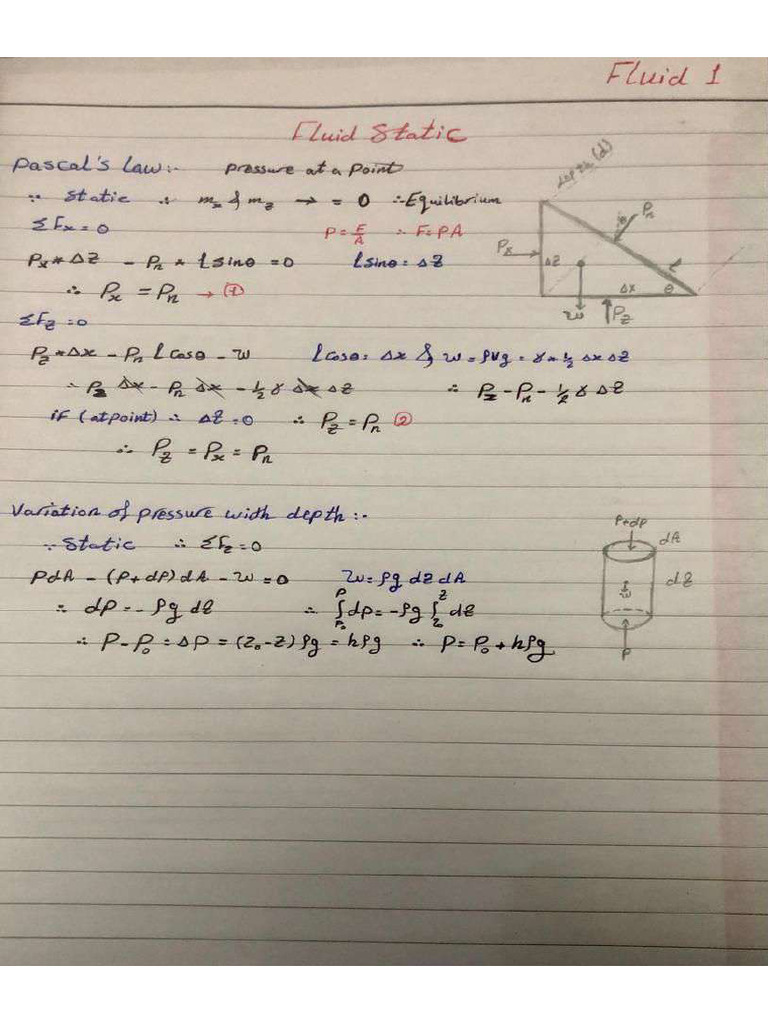 Fluid 1
Fluid Static
Pascal's Law:- Pressure at a Point
∵ Static ∴ → = 0 ∴ Equilibrium
ΣFx=0 P = F/A ∴ F=PA
Px*ΔZ - Pn * l sinθ = 0 l sinθ = ΔZ
∴ Px = Pn → ①
ΣFz=0
Pz*Δx - Pn l cosθ - w l cosθ = Δx & w = ρvg = γ * ½ Δx ΔZ
∴ Pz Δx - Pn Δx - ½ γ Δx ΔZ ∴ Pz - Pn - ½ γ ΔZ
if (at point) ∴ ΔZ=0 ∴ Pz = Pn ②
∴ Pz = Px = Pn
depth (d)
Pn
θ
Px
ΔZ
l
Δx
θ
w
Pz
Variation of pressure with depth:-
∵ Static ∴ ΣFz=0
PdA - (P+dP)dA - w = 0 w = ρg dz dA
∴ dP = - ρg dz ∴ ∫ dP = -ρg ∫ dz
∴ P - P₀ = ΔP = (Z₀-Z) ρg = hρg ∴ P = P₀ + hρg
P+dP
dA
dz
w
P